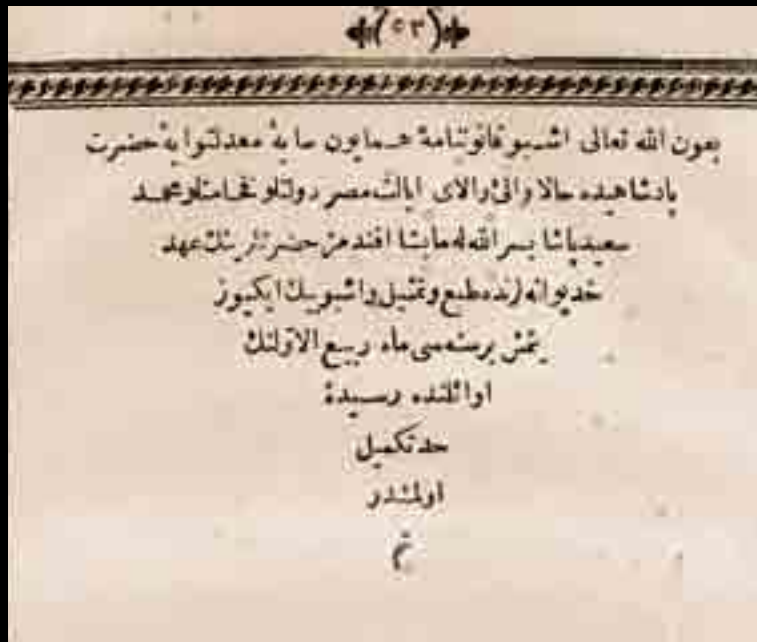 (٥٣)
بعون الله تعالى اشبو قانوننامهٔ همايون سايهٔ معدلتوايهٔ حضرت
پادشاهيده حالا والئ والاى ايالت مصر دولتلو فخامتلو محمد
سعيد پاشا يسر الله له مايشا افندمز حضرتلرينك عهد
خديوانه لرنده طبع وتمثيل واشبو بيك ايكيوز
يتمش برسنه سى ماه ربيع الاولنك
اوائلنده رسيدهٔ
حد تكميل
اولمشدر
تم